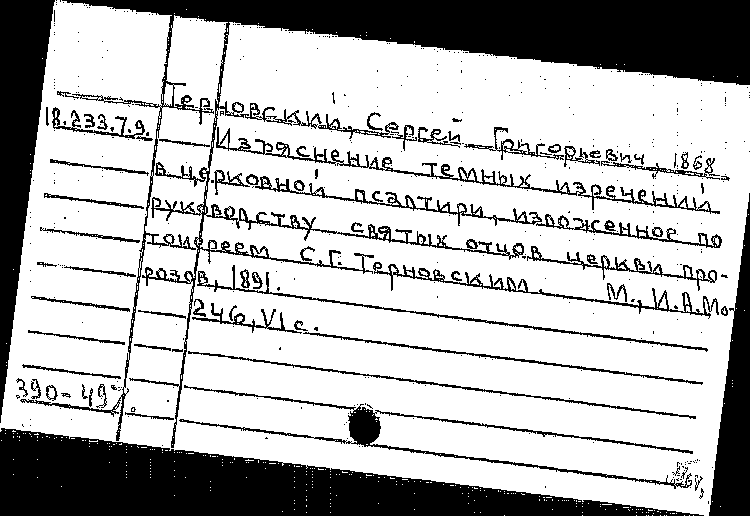 Терновский, Сергей Григорьевич, 1868
18.233.7.9.
Изъяснение темных изречений
в церковной псалтири, изложенное по
руководству святых отцов церкви про-
тоиереем С.Г. Терновским. М., И.А.Мо-
розов, 1891.
246, VI с.
390-49